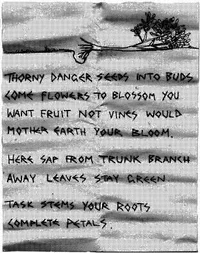 THORNY DANGER SEEDS INTO BUDS
COME FLOWERS TO BLOSSOM YOU
WANT FRUIT NOT VINES WOULD
MOTHER EARTH YOUR BLOOM.
HERE SAP FROM TRUNK BRANCH
AWAY LEAVES STAY GREEN
TASK STEMS YOUR ROOTS
COMPLETE PETALS.